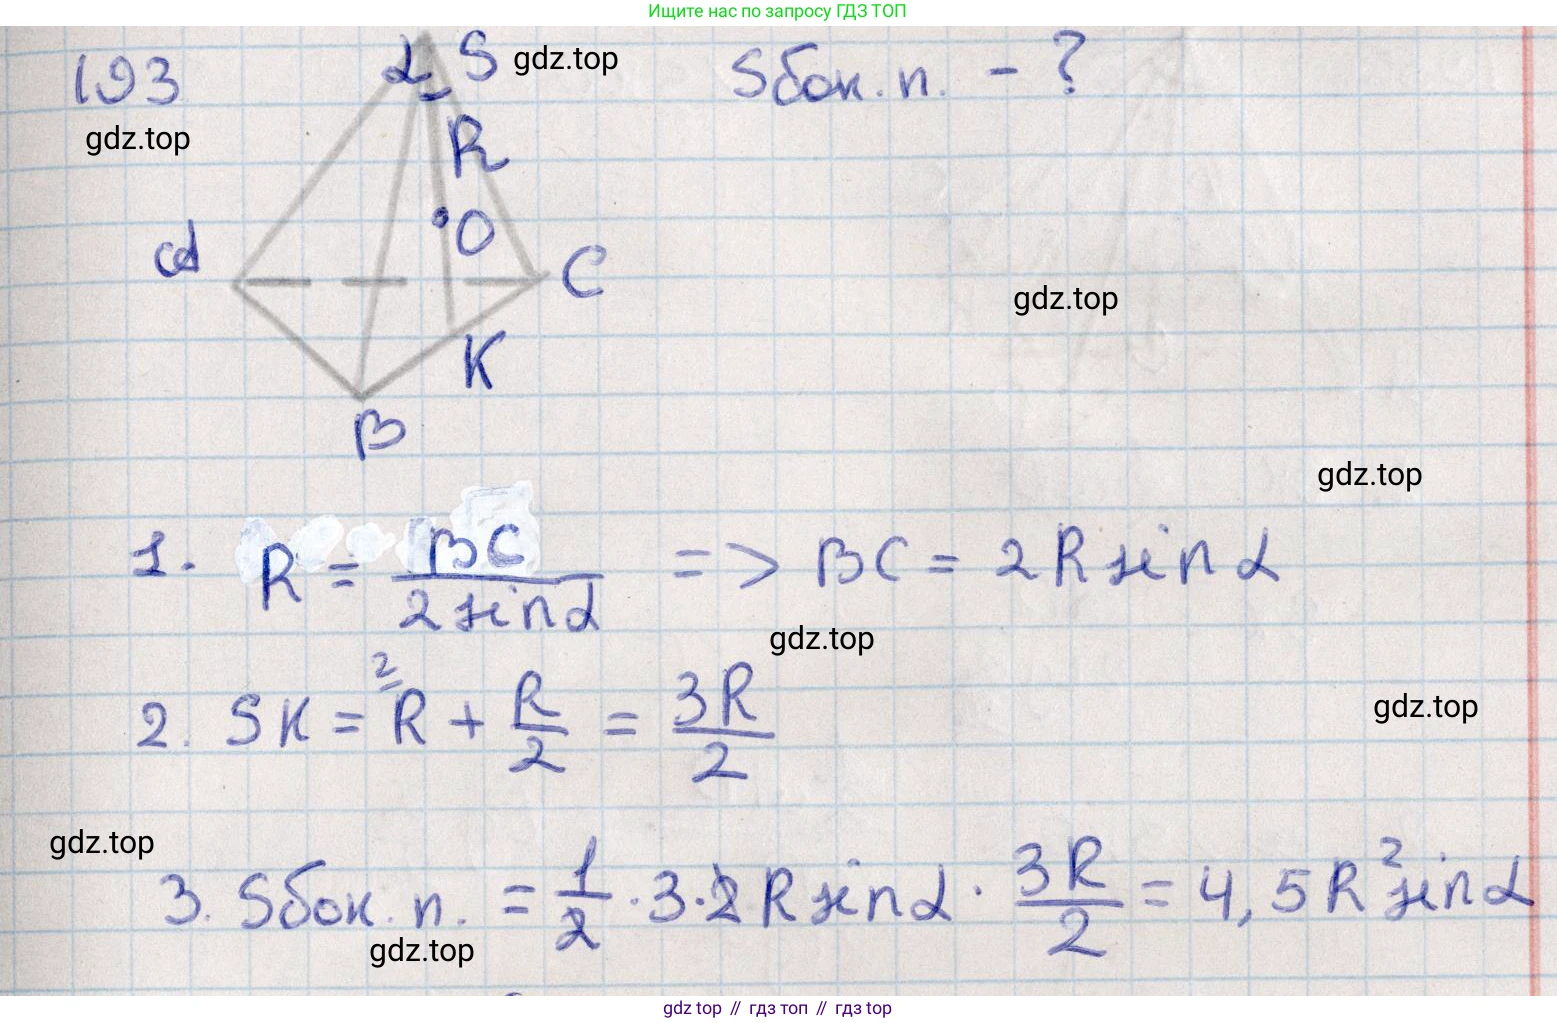 Ищите нас по запросу ГДЗ ТОП
193
α S
gdz.top
Sбок.п. - ?
gdz.top
R
O
A
C
gdz.top
K
B
gdz.top
1. R = BC / 2 sin α => BC = 2R sin α
gdz.top
2. SK = R + R/2 = 3R/2
2
gdz.top
gdz.top
3. Sбок.п. = 1/2 · 3 · 2R sin α · 3R/2 = 4,5R² sin α
gdz.top
gdz top // гдз топ // гдз top